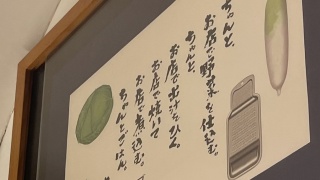 ちゃんと、
お店で野菜を仕込む。
ちゃんと、
お店で出汁をひく。
お店で焼いて
お店で煮込む。
ちゃんとごはん。